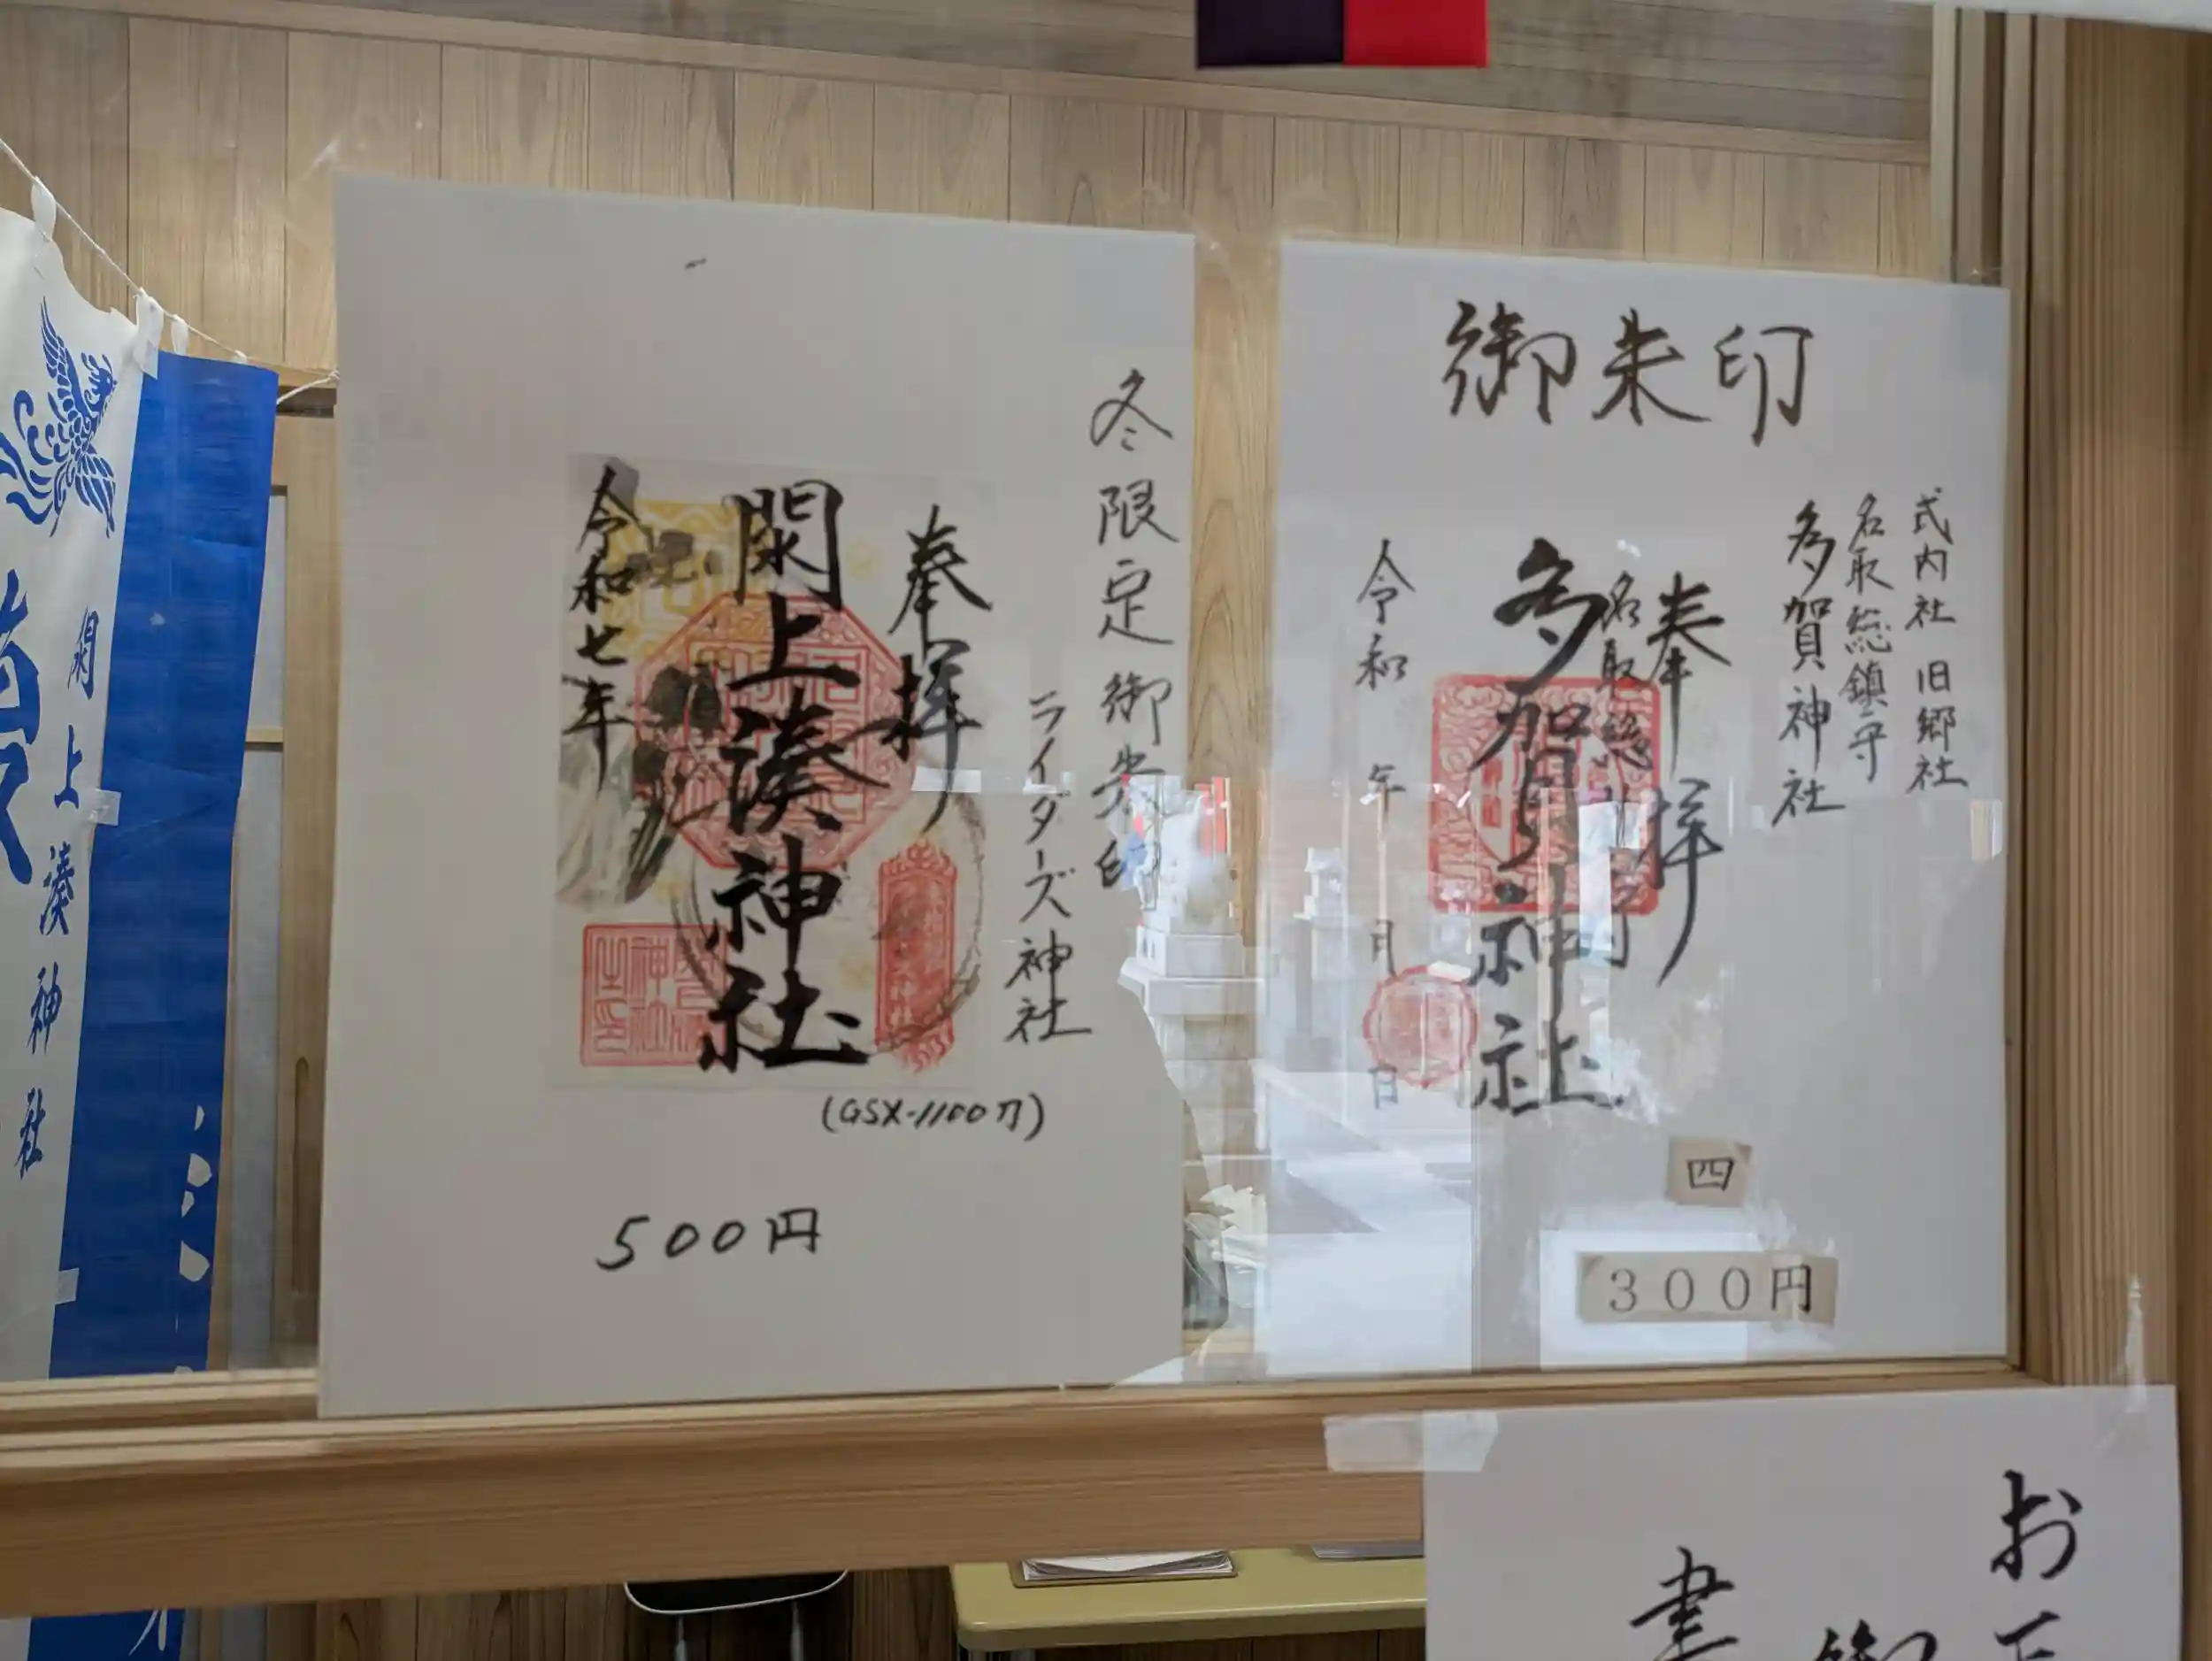 御朱印
式内社 旧郷社
名取総鎮守
多賀神社
奉拝
名取総鎮守
多賀神社
令和 年 月 日
四
300円
冬限定御朱印
ライダーズ神社
奉拝
閖上湊神社
令和七年
(GSX-1100刀)
500円
閖上湊神社
お
書
御